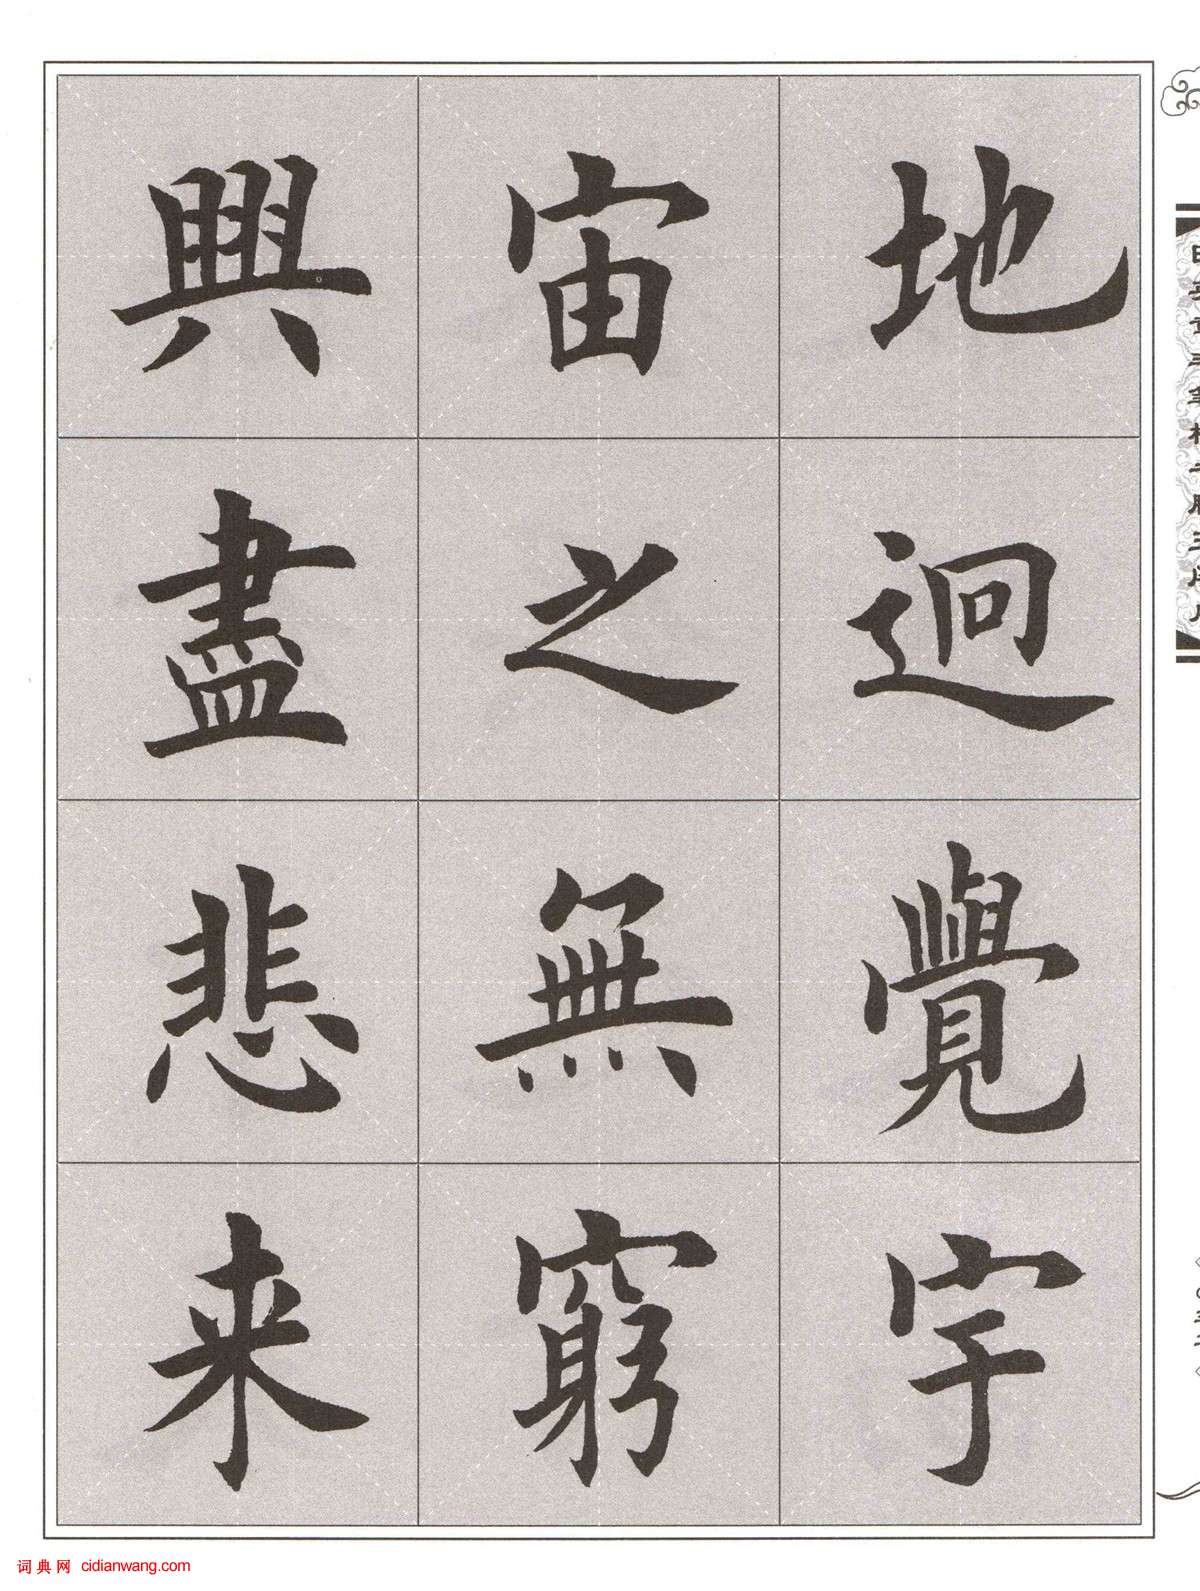 地迥覺宇
宙之無窮
興盡悲来
词典网 cidianwang.com